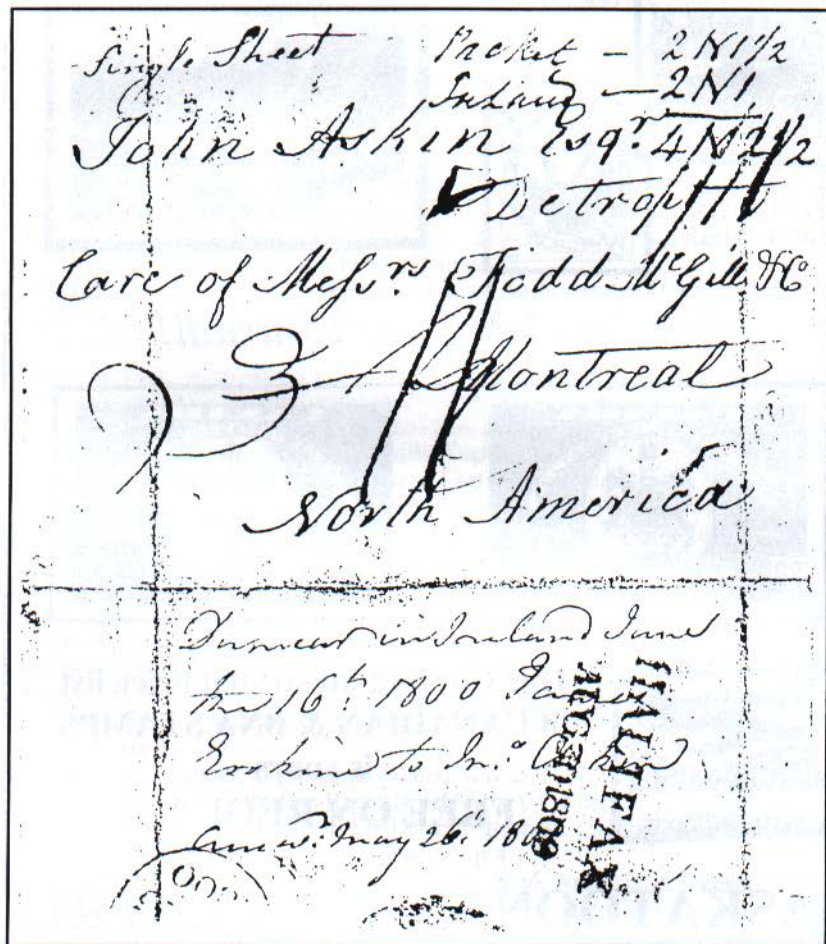 Single Sheet Packet - 2 N 1 1/2
Inland - 2 N 1
John Askin Esqr. 4 N 2 1/2
Detroit
Care of Messrs Todd McGill & Co
3 Montreal
North America
in Ireland June
the 16t. 1800
Erskin to Jno. Askin
Answd. May 26t.
HALIFAX